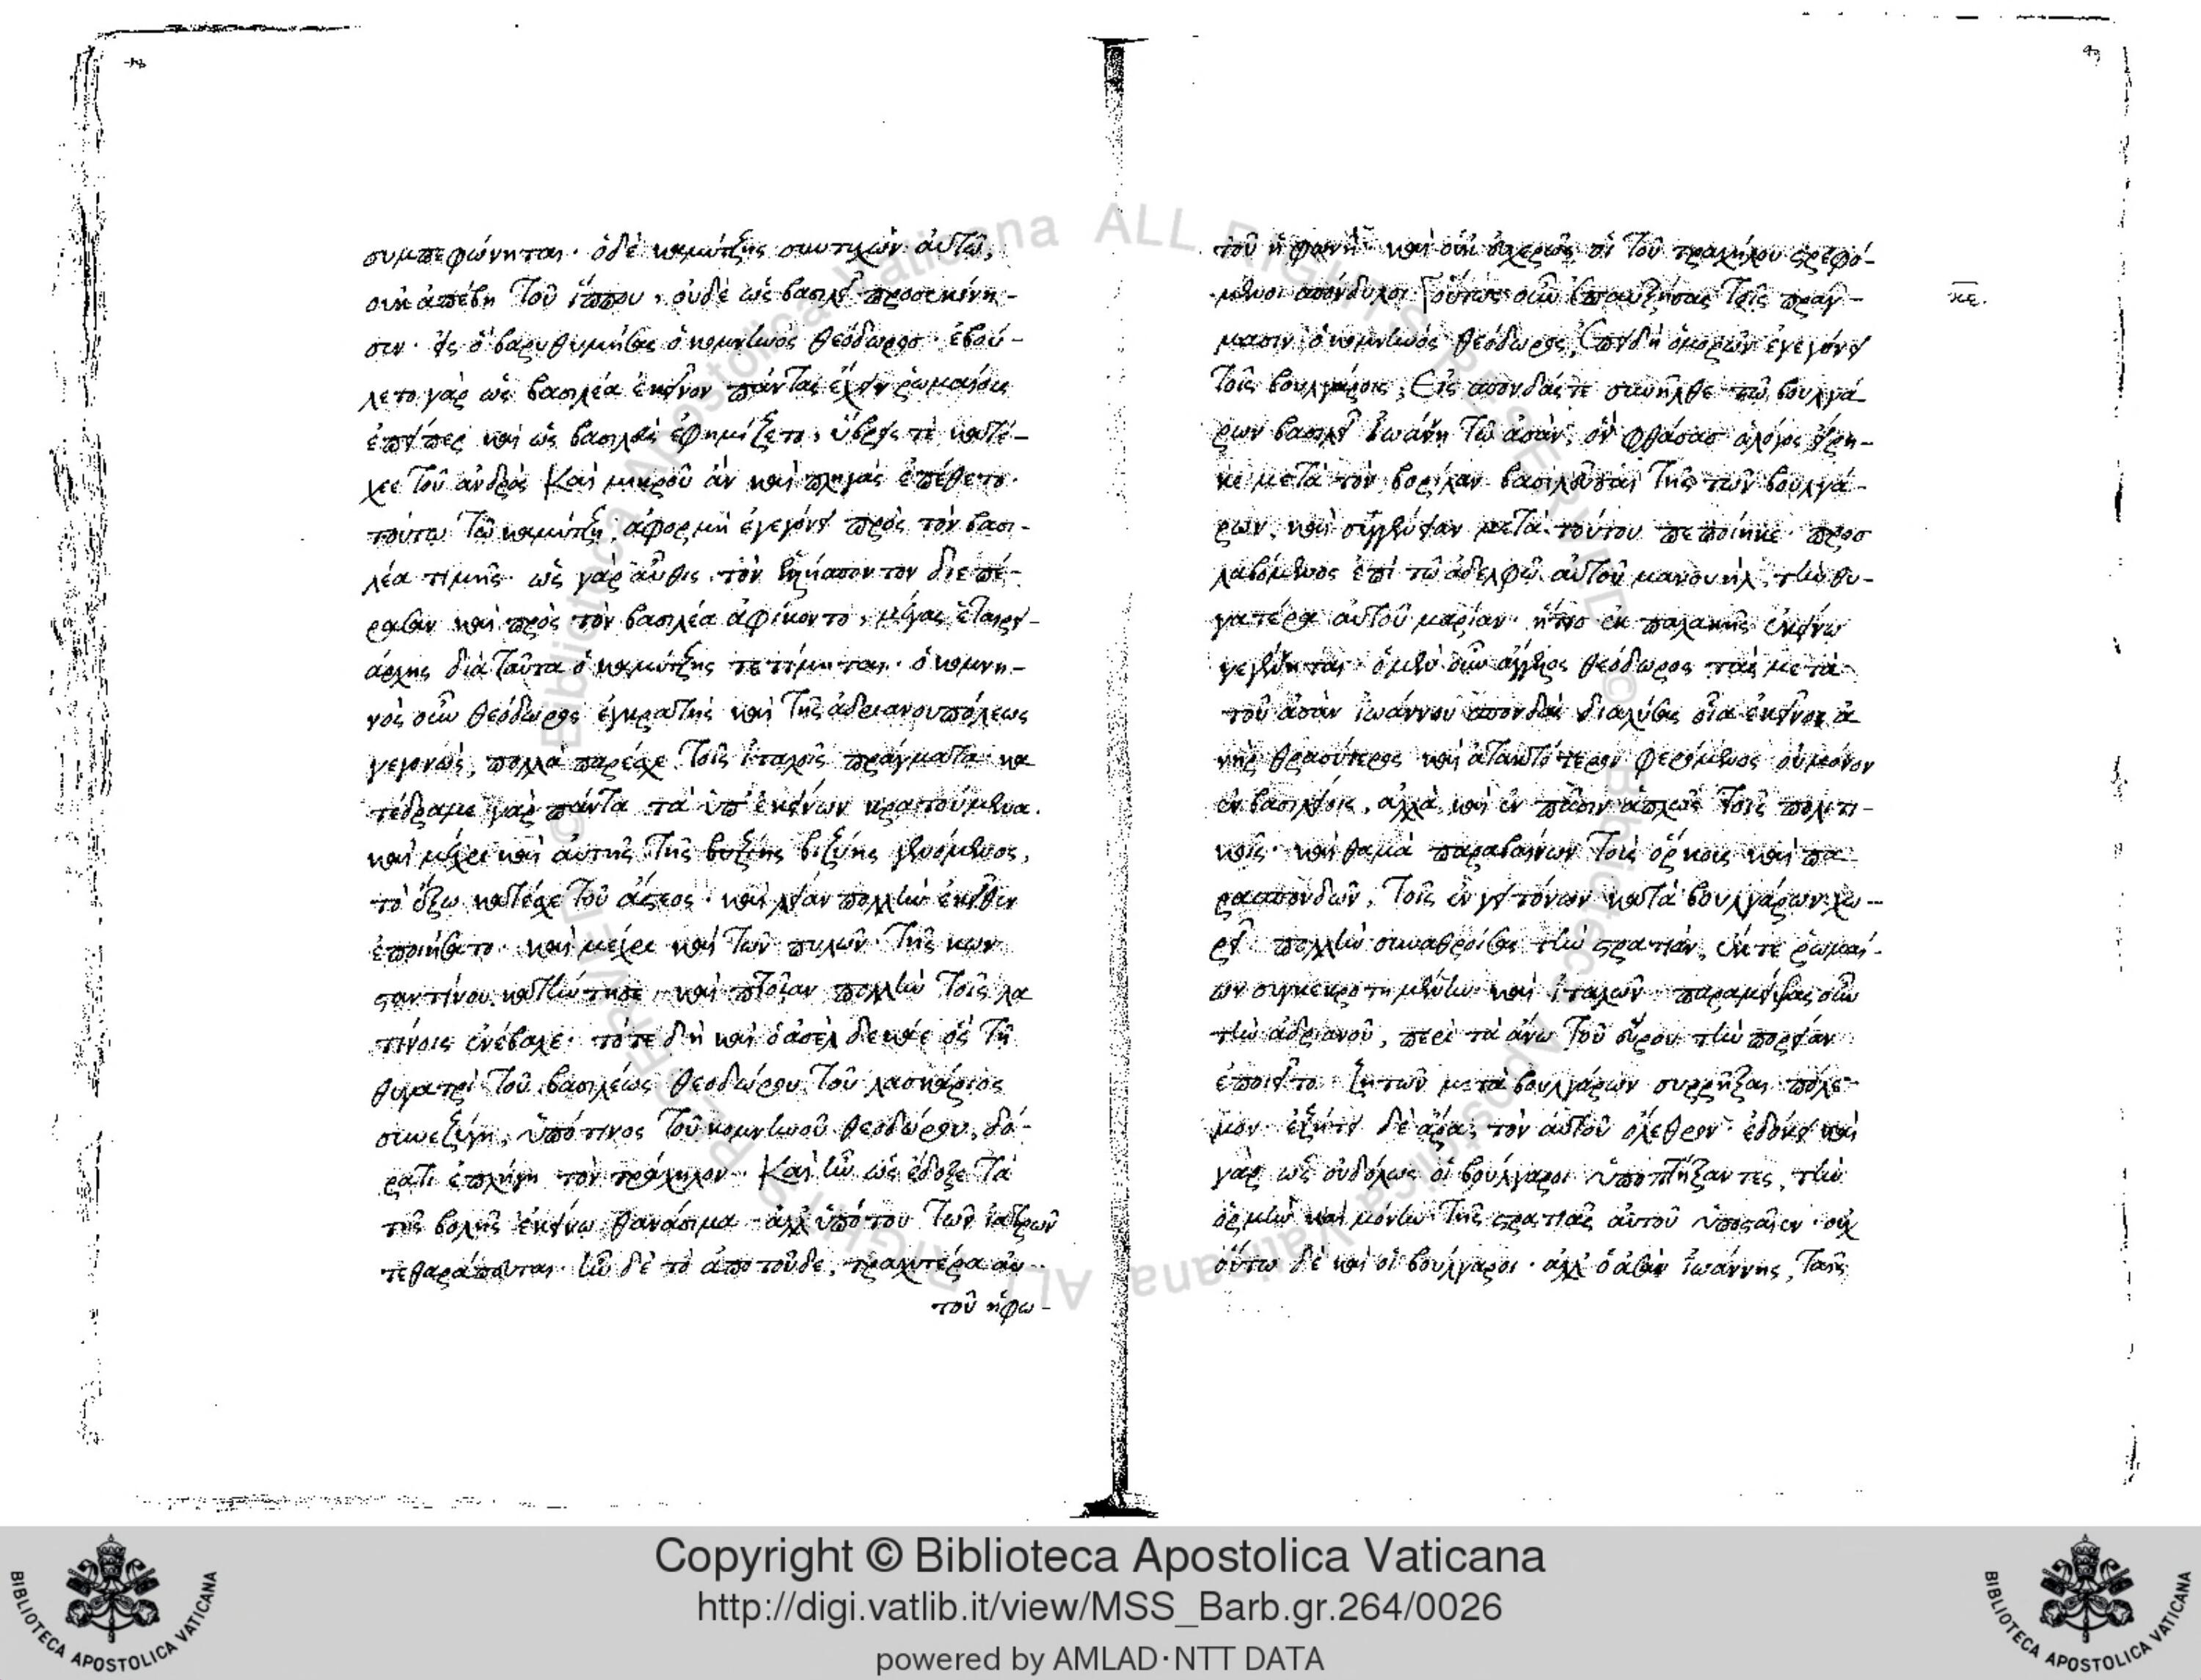 συμπεφώνηται· ὁδὲ καμύτζης συντυχὼν αὐτῶ,
οὐκ ἀπέβη τοῦ ἵππου, οὐδὲ ὡς βασιλεῖ προσεκύνη-
σεν· ἐφ ὧ βαρυθυμήσας ὁ κομνηνὸς θεόδωρος· ἐβού-
λετο γὰρ ὡς βασιλέα ἐκεῖνον πάντας ἔχειν ῥωμαίους
ἐπείπερ καὶ ὡς βασιλεὺς ἐφημίζετο, ὕβρεις τὲ κατέ-
χεε τοῦ ἀνδρὸς καὶ μικροῦ ἂν καὶ πληγὰς ἐπέθετο·
τούτω τῶ καμύτζη, ἀφορμὴ ἐγεγόνει πρὸς τὸν βασι-
λέα τιμῆς· ὡς γὰρ αὖθις τὸν ἑλήσποντον διεπέ-
ρασαν καὶ πρὸς τὸν βασιλέα ἀφίκοντο, μέγας ἑταιρει-
άρχης διὰ ταῦτα ὁ καμύτζης τετίμηται· ὁ κομνη-
νὸς οὖν θεόδωρος ἐγκρατὴς καὶ τῆς ἀδριανουπόλεως
γεγονὼς, πολλὰ παρέσχε τοῖς ἰταλοῖς πράγματα· κα
τέδραμε γὰρ πάντα τὰ ὑπ ἐκείνων κρατούμενα.
καὶ μέχρι καὶ αὐτῆς τῆς βυζίης βιζύης γενόμενος,
τὸ ἔξω κατέσχε τοῦ ἄστεος· καὶ λείαν πολλὴν ἐκεῖθεν
ἐποιήσατο· καὶ μέχρι καὶ τῶν πυλῶν τῆς κων
σταντίνου κατήντησε, καὶ πτοίαν πολλὴν τοῖς λα
τίνοις ἐνέβαλε· τότε δὴ καὶ ὁ ἀσὲλ δεκάε ὃς τῆ
θυγατρὶ τοῦ βασιλέως θεοδώρου τοῦ λασκάριος
συνεζύγη, ὑπότινος τοῦ κομνηνοῦ θεοδώρου, δό-
ρατι ἐπλήγη τὸν τράχηλον· καὶ ἦν ὡς ἔδοξε τὰ
τῆς βολῆς ἐκείνω θανάσιμα· ἀλλ ὑπό του τῶν ἰατρῶν
τεθαράπευται· ἦν δὲ τὸ ἀποτοῦδε, τραχυτέρα αὐ-
τοῦ ἡφω-
τοῦ ἡ φωνή· καὶ οὐκ εὐχερῶς οἱ τοῦ τραχήλου στρεφό-
μενοι σπόνδυλοι οὕτως οὖν ἐπαυξήσας τοῖς πράγ-
κε.
μασιν ὁ κομνηνὸς θεόδωρος, ἐπειδὴ ὁμορῶν ἐγεγόνει
τοῖς βουλγάροις, εἰς σπονδάς τε συνῆλθε τῶ βουλγά-
ρων βασιλεῖ ἰωάνη τῶ ἀσὰν, ὃν φθάσας ὁ λόγος εἴρη-
κε μετὰ τὸν βορίλαν βασιλεῦσαι τῆς τῶν βουλγά-
ρων, καὶ συγγένειαν μετὰ τούτου πεποίηκε· προσ
λαβόμενος ἐπὶ τῶ ἀδελφῶ αὐτοῦ μανουὴλ, τὴν θυ-
γατέρα αὐτοῦ μαρίαν· ἥτις ἐκ παλακῆς ἐκείνω
γεγένηται· ὁμὲν οὖν ἄγγελος θεόδωρος τὰς μετὰ
τοῦ ἀσὰν ἰωάννου σπονδὰς διαλύσας οἷα ἐκεῖνος ἀ
νὴρ θρασύτερος καὶ ἀτακτότερον φερόμενος οὐμόνον
ἐν βασιλείοις, ἀλλὰ καὶ ἐν πᾶσιν ἁπλῶς τοῖς πολιτι-
κοῖς· καὶ θαμὰ παραβαίνων τοὺς ὅρκους καὶ πα-
ρασπονδῶν, τοῖς ἐν γειτόνων κατὰ βουλγάρων χω-
ρεῖ πολλὴν συναθροίσας τὴν στρατιὰν, ἔκ τε ῥωμαί-
ων συγκεκροτημένην καὶ ἰταλῶν· παραμείψας οὖν
τὴν ἀδριανοῦ, περὶ τὰ ἄνω τοῦ εὔρου τὴν πορείαν
ἐποιεῖτο· ζητῶν μετὰ βουλγάρων συρρῆξαι πόλε-
μον· ἐζήτει δὲ ἄρα, τὸν αὐτοῦ ὄλεθρον· ἐδόκει καὶ
γὰρ ὡς οὐδόλως οἱ βούλγαροι ὑποπτήξαντες, τὴν
ὁρμὴν καὶ μόνην τῆς στρατιᾶς αὐτοῦ ὑποσταῖεν· οὐχ
οὕτω δὲ καὶ οἱ βούλγαροι· ἀλλ ὁ ἀσὰν ἰωάννης, ταῖς
Copyright © Biblioteca Apostolica Vaticana
http://digi.vatlib.it/view/MSS_Barb.gr.264/0026
powered by AMLAD·NTT DATA
BIBLIOTECA APOSTOLICA VATICANA
BIBLIOTECA APOSTOLICA VATICANA